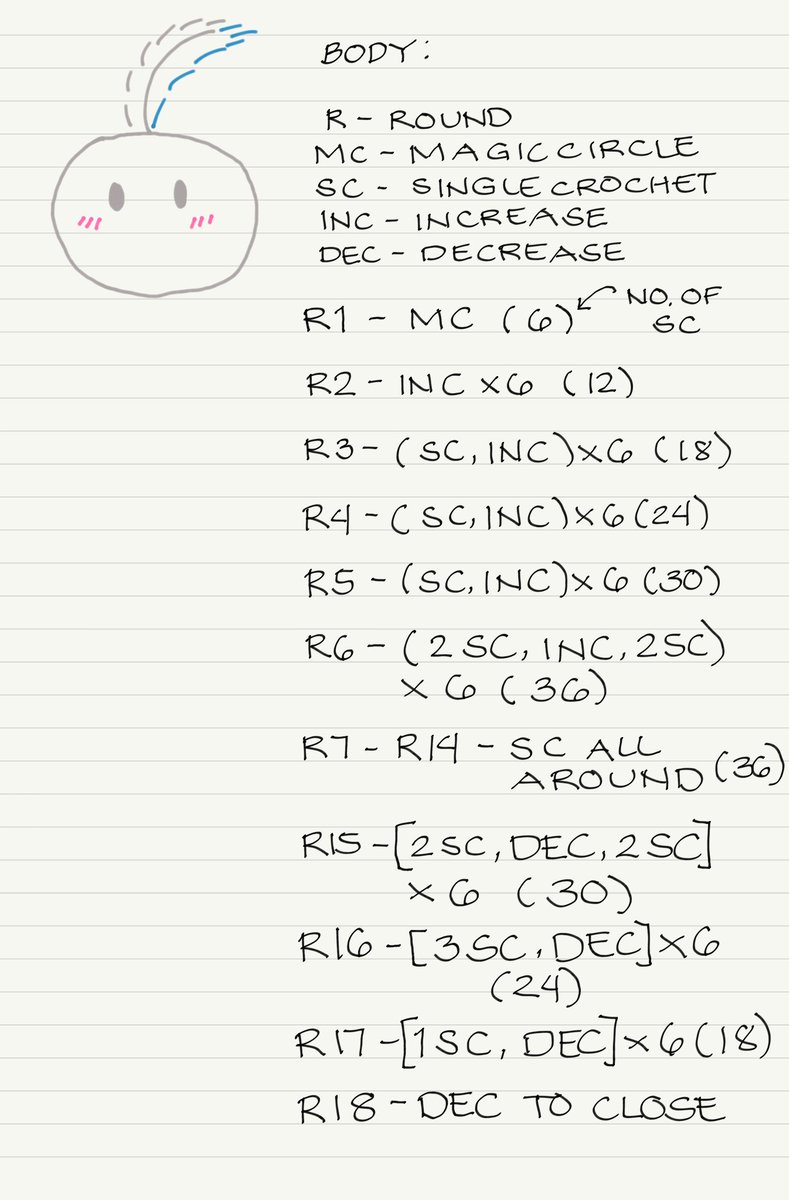 BODY:
R - ROUND
MC - MAGIC CIRCLE
SC - SINGLE CROCHET
INC - INCREASE
DEC - DECREASE
R1 - MC (6) NO. OF
SC
R2 - INC x6 (12)
R3 - (SC, INC)x6 (18)
R4 - (SC, INC)x6 (24)
R5 - (SC, INC)x6 (30)
R6 - (2 SC, INC, 2SC)
x 6 (36)
R7 - R14 - SC ALL
AROUND (36)
R15 - [2SC, DEC, 2SC]
x 6 (30)
R16 - [3SC, DEC]x6
(24)
R17 - [1SC, DEC]x6 (18)
R18 - DEC TO CLOSE